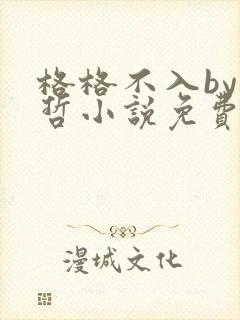 格格不入by
哲小說免費
漫城文化